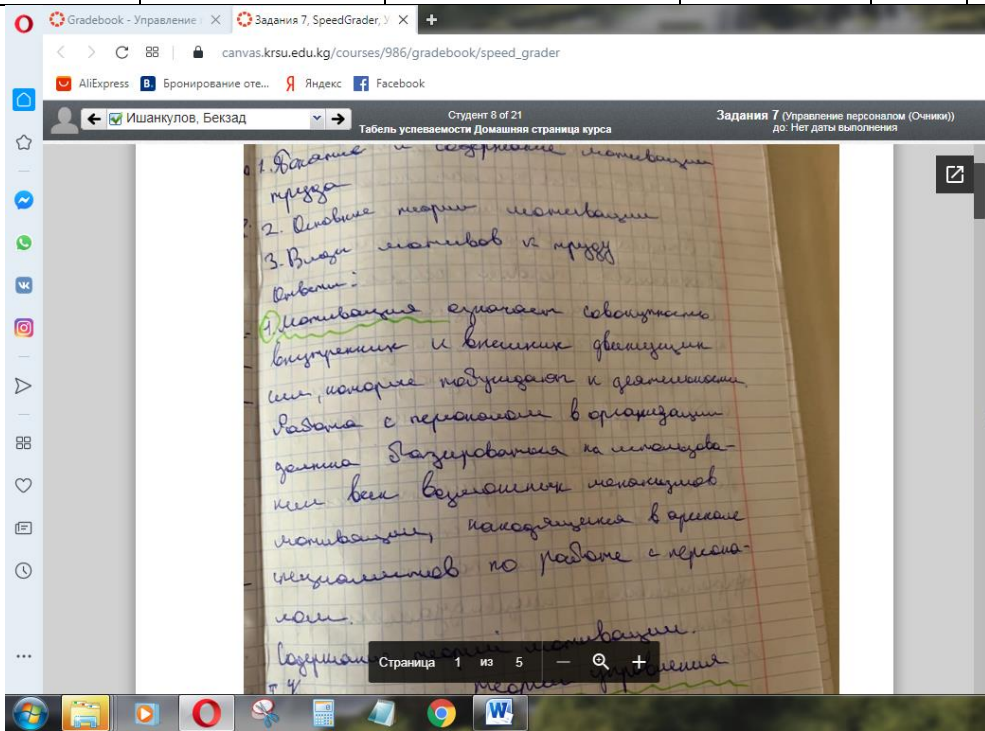 Gradebook - Управление
Задания 7, SpeedGrader, У
canvas.krsu.edu.kg/courses/986/gradebook/speed_grader
AliExpress
B. Бронирование оте...
Я Яндекс
Facebook
Ишанкулов, Бекзад
Студент 8 of 21
Табель успеваемости Домашняя страница курса
Задания 7 (Управление персоналом (Очники))
до: Нет даты выполнения
1. и содержание мотивации
труда
2. Основные теории мотивации
3. Виды мотивов к труду
Ответы:
1. Мотивация означает совокупность
внутренних и внешних движущих
сил, которые побуждают к деятельности.
Работа с персоналом в организации
должна базироваться на использова-
нии всех возможных механизмов
мотивации, находящихся в арсенале
специалистов по работе с персона-
лом.
Содержание теорий мотивации.
теории управления
Страница 1 из 5